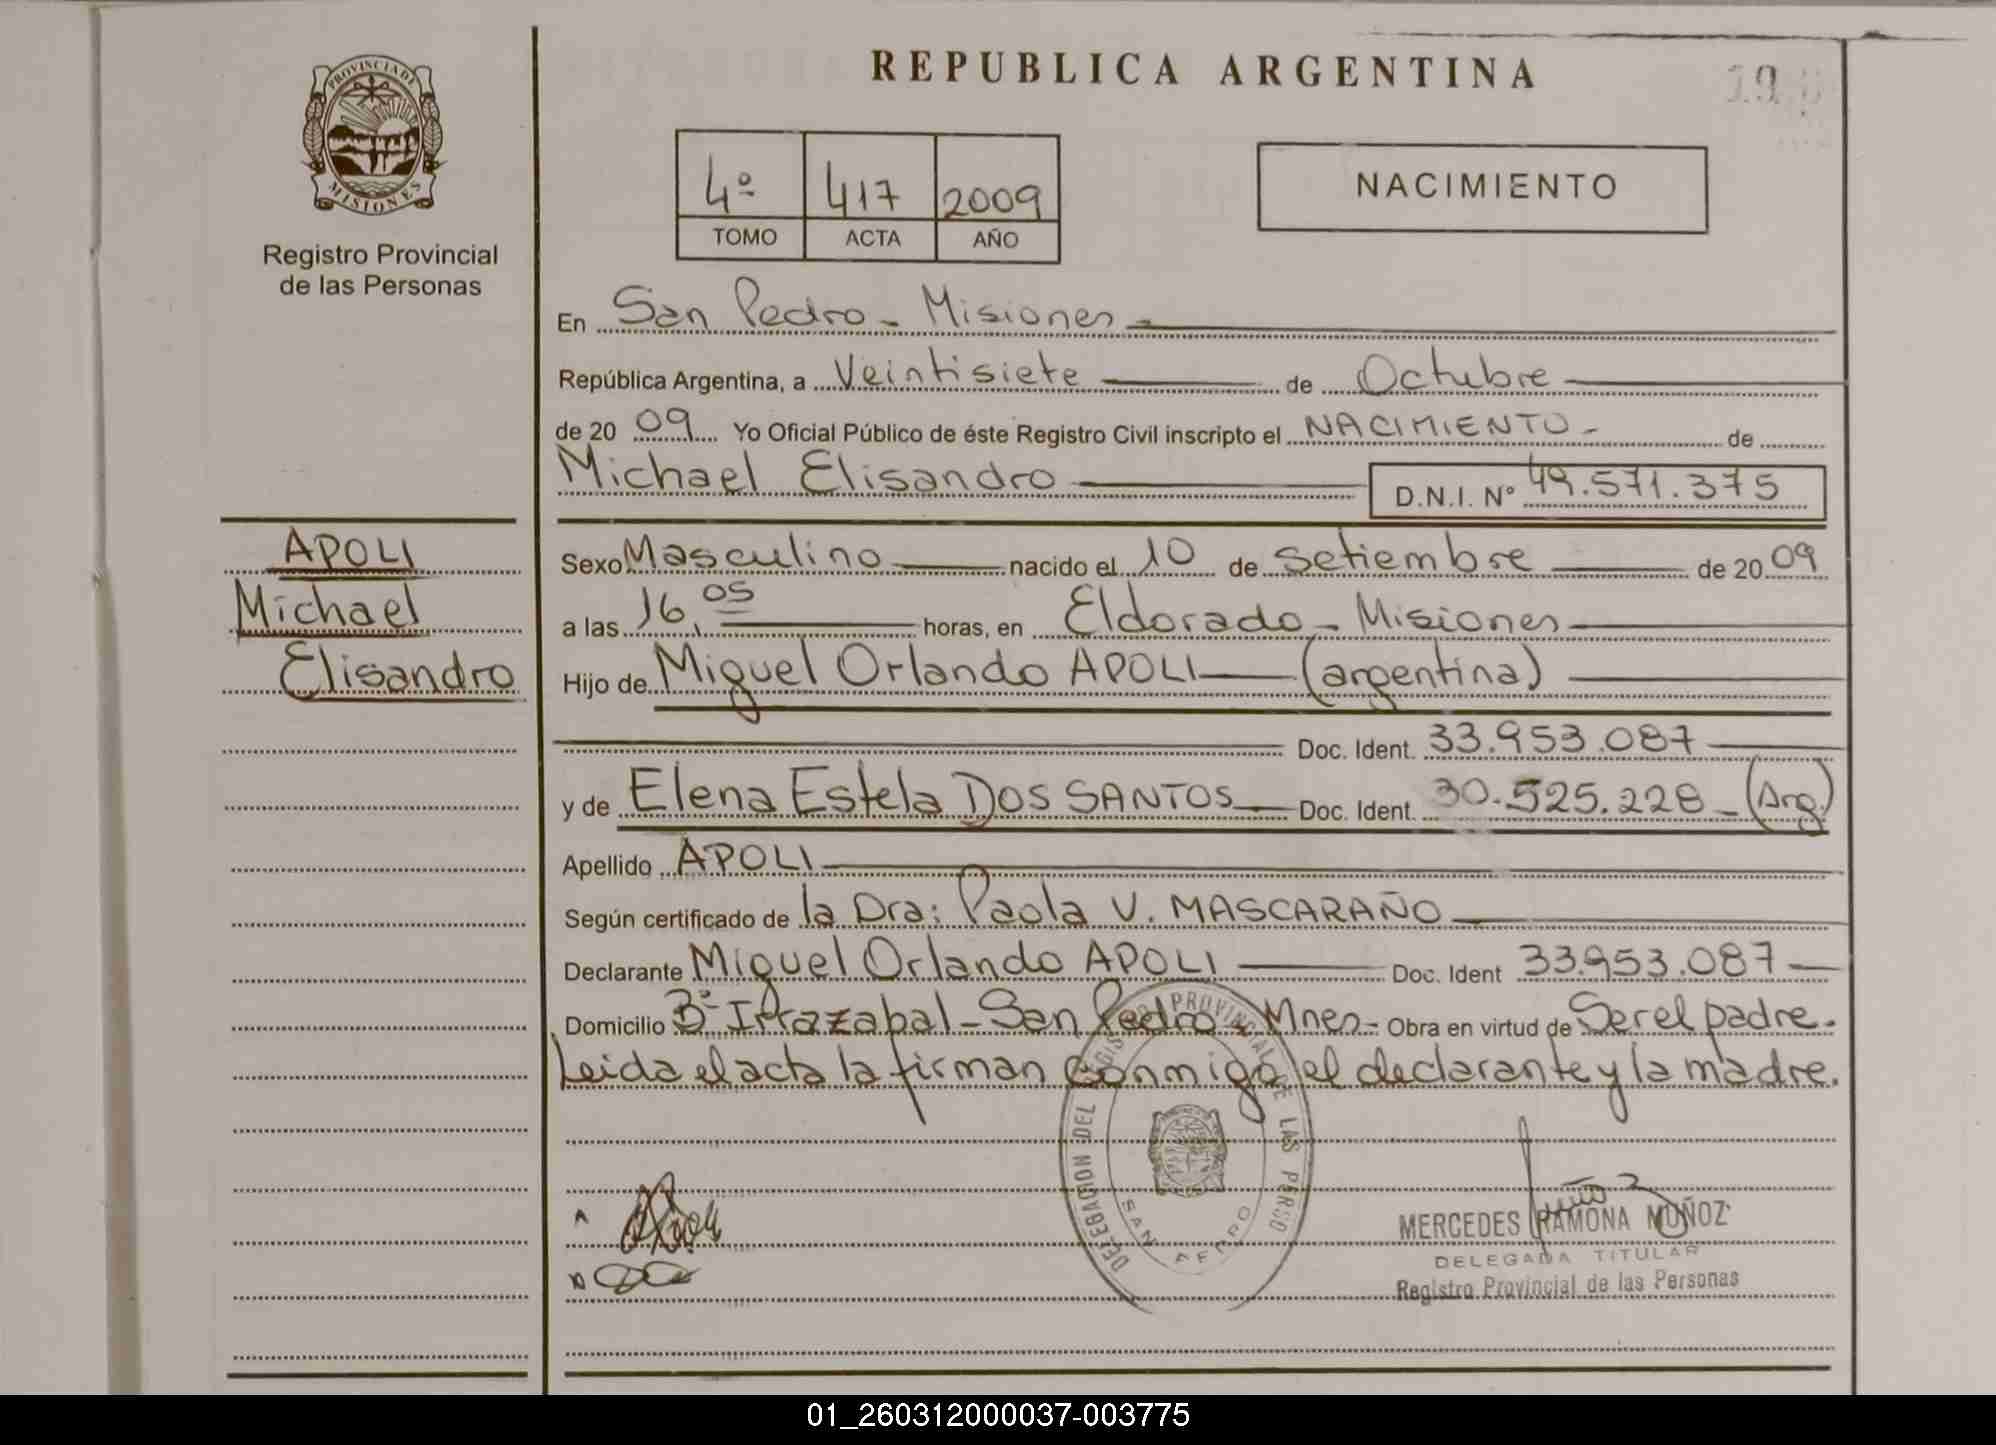 REPUBLICA ARGENTINA
PROVINCIA DE
MISIONES
Registro Provincial
de las Personas
4º 417 2009
TOMO ACTA AÑO
NACIMIENTO
En San Pedro - Misiones
República Argentina, a Veintisiete de Octubre
de 20 09 Yo Oficial Público de éste Registro Civil inscripto el NACIMIENTO - de
Michael Elisandro D.N.I. Nº 49.571.375
APOLI
Michael
Elisandro
Sexo Masculino nacido el 10 de Setiembre de 20 09
a las 16,05 horas, en Eldorado - Misiones
Hijo de Miguel Orlando APOLI (argentina)
Doc. Ident. 33.953.087
y de Elena Estela DOS SANTOS Doc. Ident. 30.525.228 - (Arg.)
Apellido APOLI
Según certificado de la Dra: Paola V. MASCARAÑO
Declarante Miguel Orlando APOLI Doc. Ident 33.953.087
Domicilio Bº Irrazabal - San Pedro - Mnes - Obra en virtud de Ser el padre.
Leida el acta la firman conmigo el declarante y la madre.
DELEGACION DEL REGISTRO PROVINCIAL DE LAS PERSO
SAN PEDRO
MERCEDES RAMONA MUÑOZ
DELEGADA TITULAR
Registro Provincial de las Personas
01_260312000037-003775